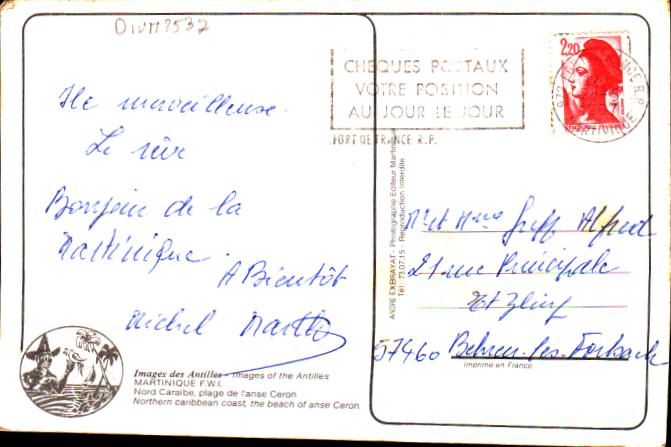 DIVM2537
CHEQUES POSTAUX
VOTRE POSITION
AU JOUR LE JOUR
FORT DE FRANCE R.P.
2,20
Ile merveilleuse.
Le rêve
Bonjour de la
Martinique.
A Bientôt
Michel
Mr et Mme Greff Alfred
21 rue Principale
Etzling
57460 Behren-les-Forbach
Imprimé en France
ANDRE EXBRAYAT - Photographe Editeur Martinique
Tél: 73.07.15 - Reproduction Interdite
Images des Antilles - Images of the Antilles
MARTINIQUE F.W.I.
Nord Caraïbe, plage de l'anse Ceron
Northern caribbean coast, the beach of anse Ceron.